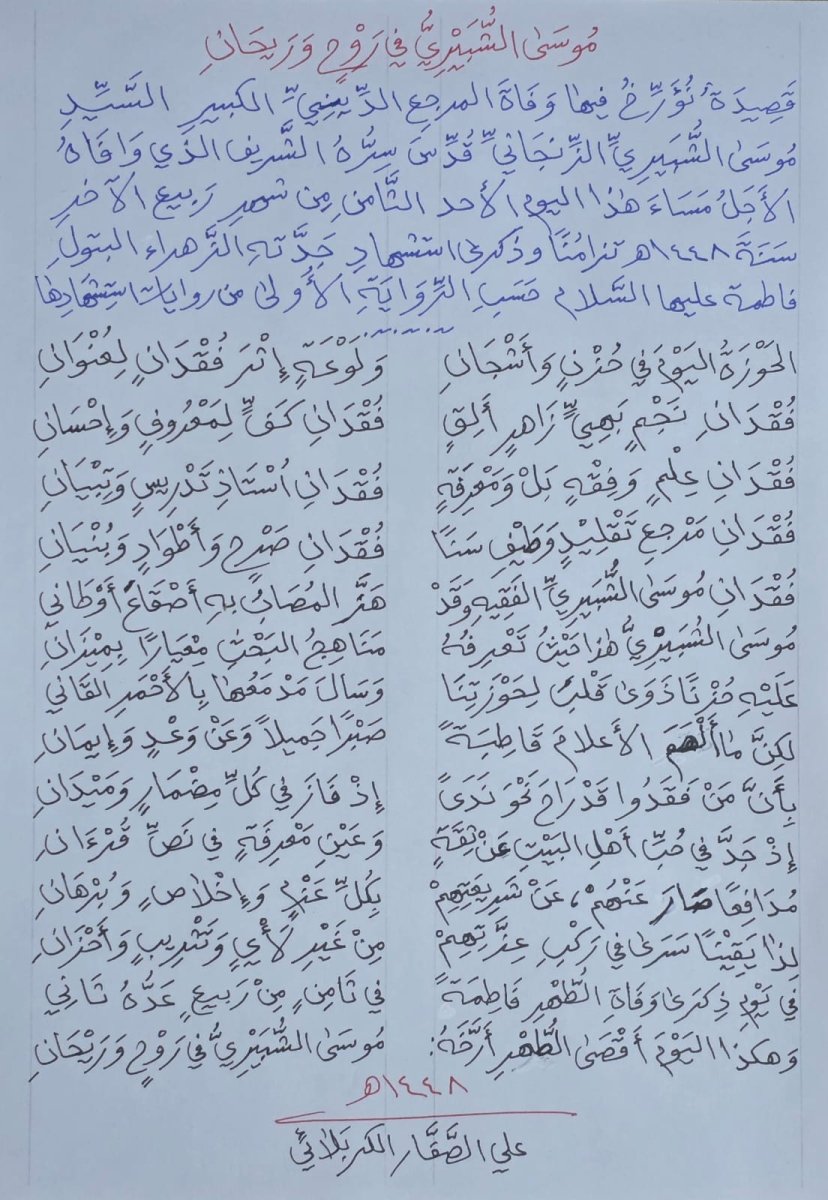 مُوسَىٰ الشُّبَيْرِيُّ فِي رَوْحٍ وَرَيحَانِ
قَصِيدَةٌ نُؤَرِّخُ فِيهَا وَفَاةَ المرجعِ الدِّينِيِّ الكبيرِ السَّيِّدِ
مُوسَىٰ الشُّبَيرِيِّ الزَّنجَانيِّ قُدِّسَ سِرُّهُ الشَّريف الَّذي وَافَاهُ
الأَجَلُ مَسَاءَ هٰذا اليومِ الأحد الثَّامن مِن شهرِ رَبيعِ الآخرِ
سَنَةَ ١٤٤٨هـ تزامُنًا وذكرىٰ استشهادِ جَدَّتهِ الزَّهراء البتولِ
فاطمة عليها السَّلام حَسَبِ الرِّوَايَةِ الأُولىٰ من رواياتِ استِشهَادِهَا
الحَوْزَةُ اليَوْمَ فِي حُزْنٍ وَأَشْجَانِ وَلَوْعَةٍ إِثْرَ فُقْدَانٍ لِعُنْوَانِ
فُقْدَانِ نَجْمٍ بَهِيٍّ زَاهِرٍ أَلِقٍ فُقْدَانِ كَفٍّ لِمَعْرُوفٍ وَإِحْسَانِ
فُقْدَانِ عِلْمٍ وَفِقْهٍ بَلْ وَمَعْرِفَةٍ فُقْدَانِ اُسْتَاذِ تَدْرِيسٍ وَتِبْيَانِ
فُقْدَانِ مَرْجِعِ تَقْلِيدٍ وَطَيْفِ سَنَا فُقْدَانِ صَرْحٍ وَأَطْوَادٍ وَبُنْيَانِ
فُقْدَانِ مُوسَىٰ الشُّبَيرِيِّ الفَقِيهِ وَقَدْ هَزَّ المُصَابُ بِهِ أَصْقَاعَ أَوْطَانِي
مُوسَىٰ الشُّبَيْرِيُّ هٰذا حَيْثُ تَعْرِفُهُ مَنَاهِجُ البَحْثِ مِعْيَارًا بِمِيْزَانِ
عَلَيْهِ حُزْنًا ذَوَىٰ قَلْبٌ لِحَوْزَتِنَا وَسَالَ مَدْمَعُهَا بِالأَحْمَرِ القَانِي
لكِنَّ مَا أَلْهَمَ الأَعلامَ قَاطِبَةً صَبْرًا جَمِيلاً وَعَنْ وَعْدٍ وَإِيمَانِ
بِأَنَّ مَنْ فَقَدُوا قَدْ رَاحَ نَحْوَ نَدَىً إِذْ فَازَ فِي كُلِّ مِضْمَارٍ وَمَيْدَانِ
إِذْ جَدَّ فِي حُبِّ أَهْلِ البَيْتِ عَنْ ثِقَةٍ وَعَيْنِ مَعْرِفَةٍ فِي نَصِّ قُرْءَانِ
مُدَافِعًا صَارَ عَنْهُمْ، عَنْ شَرِيعَتِهِمْ بِكُلِّ عَزْمٍ وَإِخْلَاصٍ وَبُرْهَانِ
لِذَا يَقِيْنًا سَرَىٰ فِي رَكْبِ عِزَّتِهِمْ مِنْ غَيْرِ لَأْيٍ وَتَثْرِيبٍ وَأَحْزَانِ
فِي يَوْمِ ذِكْرَىٰ وَفَاةِ الطُّهْرِ فَاطِمَةً فِي ثَامِنٍ مِنْ رَبِيعٍ عَدُّهُ ثَانِي
وَهكَذا اليَوْمَ أَقْصَىٰ الطُّهْرِ أَرَّخَهُ: مُوسَىٰ الشُّبَيْرِيُّ فِي رَوْحٍ وَرَيْحَانِ
١٤٤٨هـ
علي الصَّفَّار الكربَلائيّ